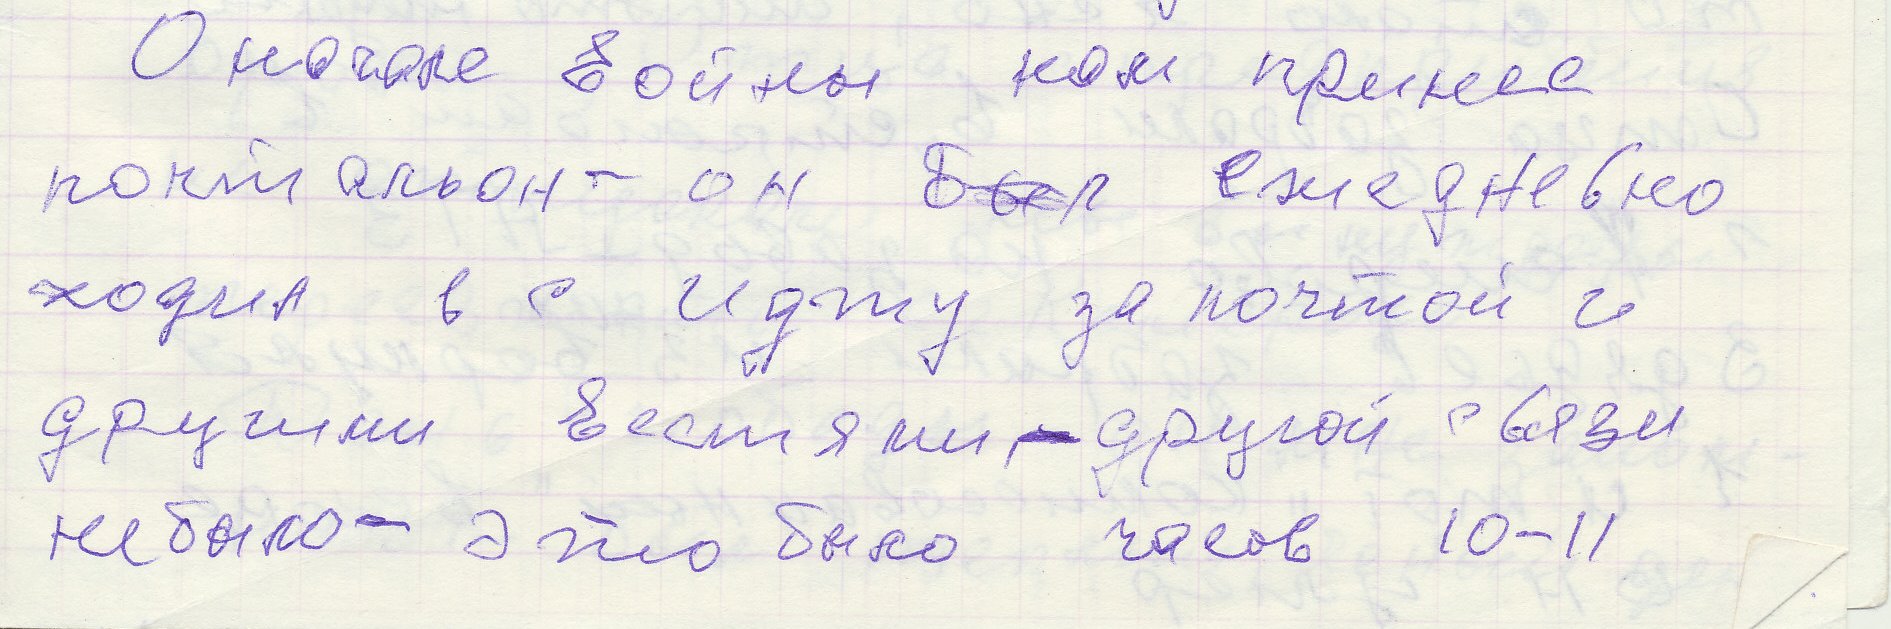 О начале войны нам принес
почтальон - он был ежедневно
ходил в с Иджу за почтой и
другими вестями, - другой связи
небыло - это было часов 10-11